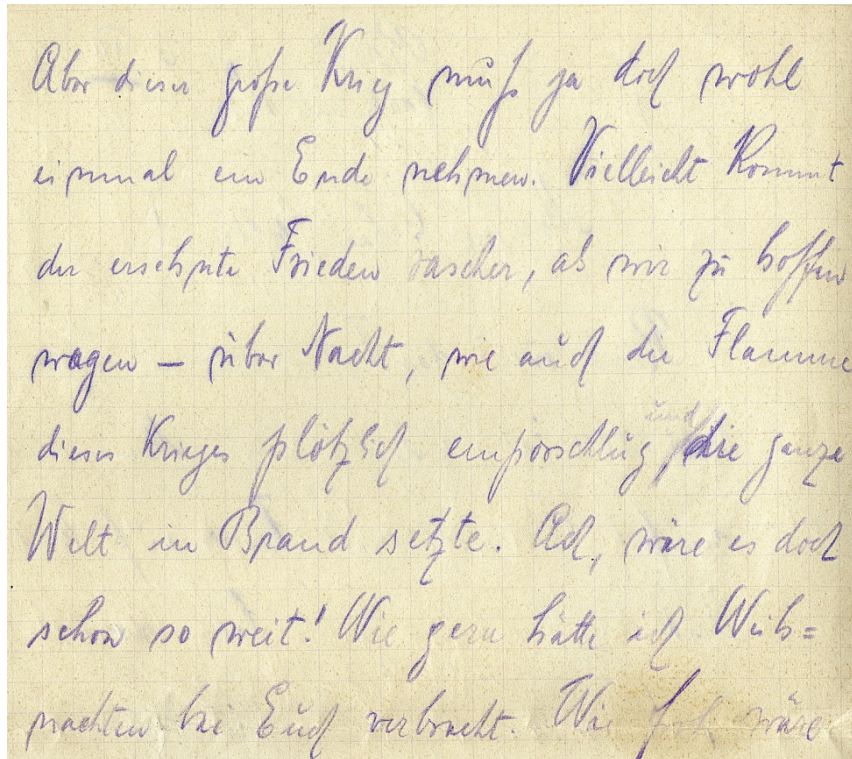 Aber dieser große Krieg muß ja doch wohl
einmal ein Ende nehmen. Vielleicht kommt
der ersehnte Frieden rascher, als wir zu hoffen
wagen — über Nacht, wie auch die Flamme
dieses Krieges plötzlich emporschlug und die ganze
Welt in Brand setzte. Ach, wäre es doch
schon so weit! Wie gern hätte ich Weih=
nachten bei Euch verbracht. Wie froh wäre